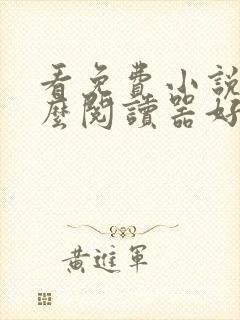 看免費小說
麼閱讀器好
黃進軍